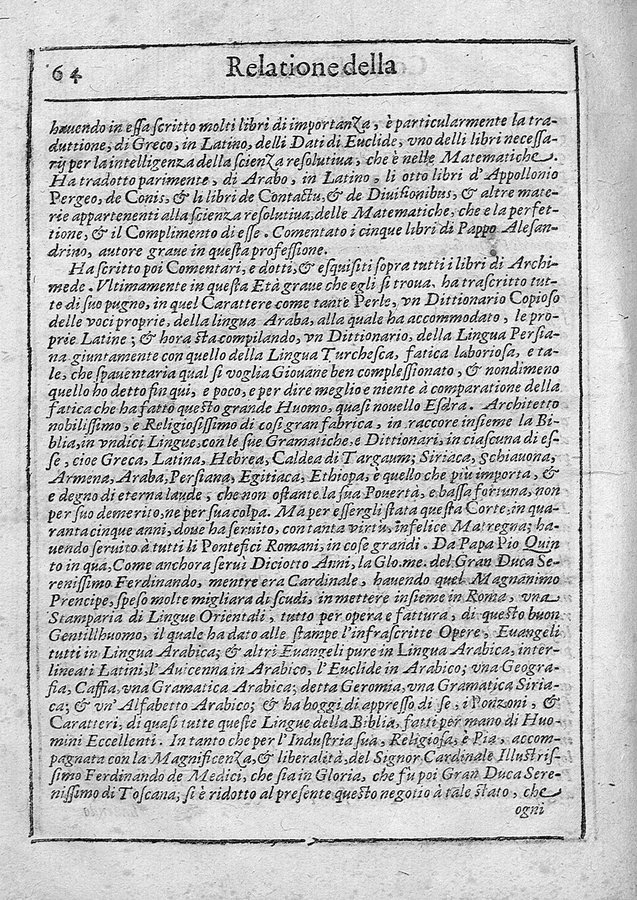 64
Relatione della
hauendo in essa scritto molti libri di importanza, è particularmente la tra-
duttione, di Greco, in Latino, delli Dati di Euclide, vno delli libri necessa-
rij per la intelligenza della scienza resolutiua, che è nelle Matematiche.
Ha tradotto parimente, di Arabo, in Latino, li otto libri d'Appollonio
Pergeo, de Conis, & li libri de Contactu, & de Diuisionibus, & altre mate-
rie appartenenti alla scienza resolutiua, delle Matematiche, che e la perfet-
tione, & il Complimento di esse. Comentato i cinque libri di Pappo Alesan-
drino, autore graue in questa professione.
Ha scritto poi Comentari, e dotti, & esquisiti sopra tutti i libri di Archi-
mede. Vltimamente in questa Età graue che egli si troua, ha trascritto tut-
te di suo pugno, in quel Carattere come tante Perle, vn Dittionario Copioso
delle voci proprie, della lingua Araba, alla quale ha accommodato, le pro-
prie Latine; & hora sta compilando, vn Dittionario, della Lingua Persia-
na giuntamente con quello della Lingua Turchesca, fatica laboriosa, e ta-
le, che spauentaria qual si voglia Giouane ben complessionato, & nondimeno
quello ho detto fin qui, e poco, e per dire meglio e niente à comparatione della
fatica che ha fatto questo grande Huomo, quasi nouello Esdra. Architetto
nobilissimo, e Religiosissimo di così gran fabrica, in raccore insieme la Bi-
blia, in vndici Lingue, con le sue Gramatiche, e Dittionari, in ciascuna di es-
se, cioe Greca, Latina, Hebrea, Caldea di Targaum; Siriaca, Schiauona,
Armena, Araba, Persiana, Egitiaca, Ethiopa; e quello che più importa, &
e degno di eterna laude, che non ostante la sua Pouertà, e bassa fortuna, non
per suo demerito, ne per sua colpa. Mà per essergli stata questa Corte, in qua-
ranta cinque anni, doue ha seruito, con tanta virtù, infelice Matregna; ha-
uendo seruito à tutti li Pontefici Romani, in cose grandi. Da Papa Pio Quin
to in quà, Come anchora seruì Diciotto Anni, la Glo. me. del Gran Duca Se-
renissimo Ferdinando, mentre era Cardinale, hauendo quel Magnanimo
Prencipe, speso molte migliara di scudi, in mettere insieme in Roma, vna
Stamparia di Lingue Orientali, tutto per opera e fattura, di questo buon
Gentillhuomo, il quale ha dato alle stampe l'infrascritte Opere, Euangeli
tutti in Lingua Arabica; & altri Euangeli pure in Lingua Arabica, inter-
lineati Latini, l'Auicenna in Arabico, l'Euclide in Arabico; vna Geogra-
fia, Caffia, vna Gramatica Arabica; detta Geromia, vna Gramatica Siria-
ca; & vn' Alfabetto Arabico; & ha hoggi di appresso di se, i Ponzoni, &
Caratteri, di quasi tutte queste Lingue della Biblia, fatti per mano di Huo-
mini Eccellenti. In tanto che per l'Industria sua, Religiosa, è Pia, accom-
pagnata con la Magnificenza, & liberalità, del Signor Cardinale Illustris-
simo Ferdinando de Medici, che sia in Gloria, che fù poi Gran Duca Sere-
nissimo di Toscana; si è ridotto al presente questo negotio à tale stato, che
ogni